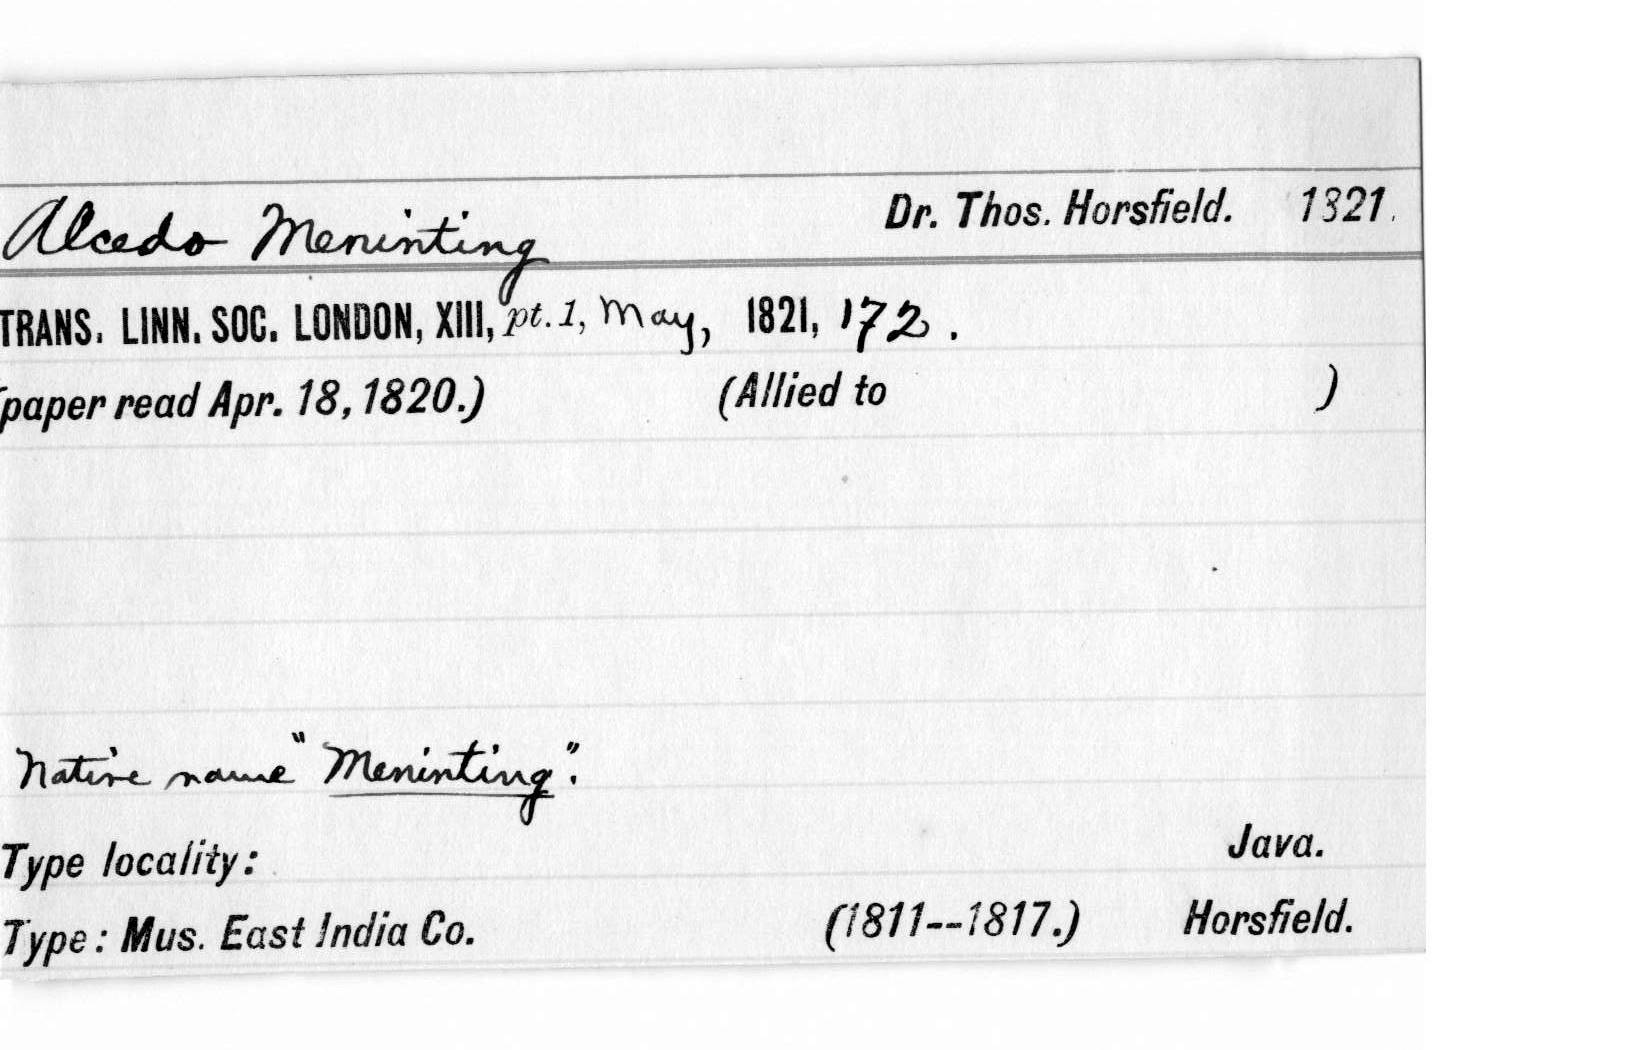 Alcedo Meninting Dr. Thos. Horsfield. 1821.
TRANS. LINN. SOC. LONDON, XIII, pt. 1, May, 1821, 172.
(paper read Apr. 18, 1820.) (Allied to )
Native name "Meninting".
Type locality: Java.
Type: Mus. East India Co. (1811--1817.) Horsfield.